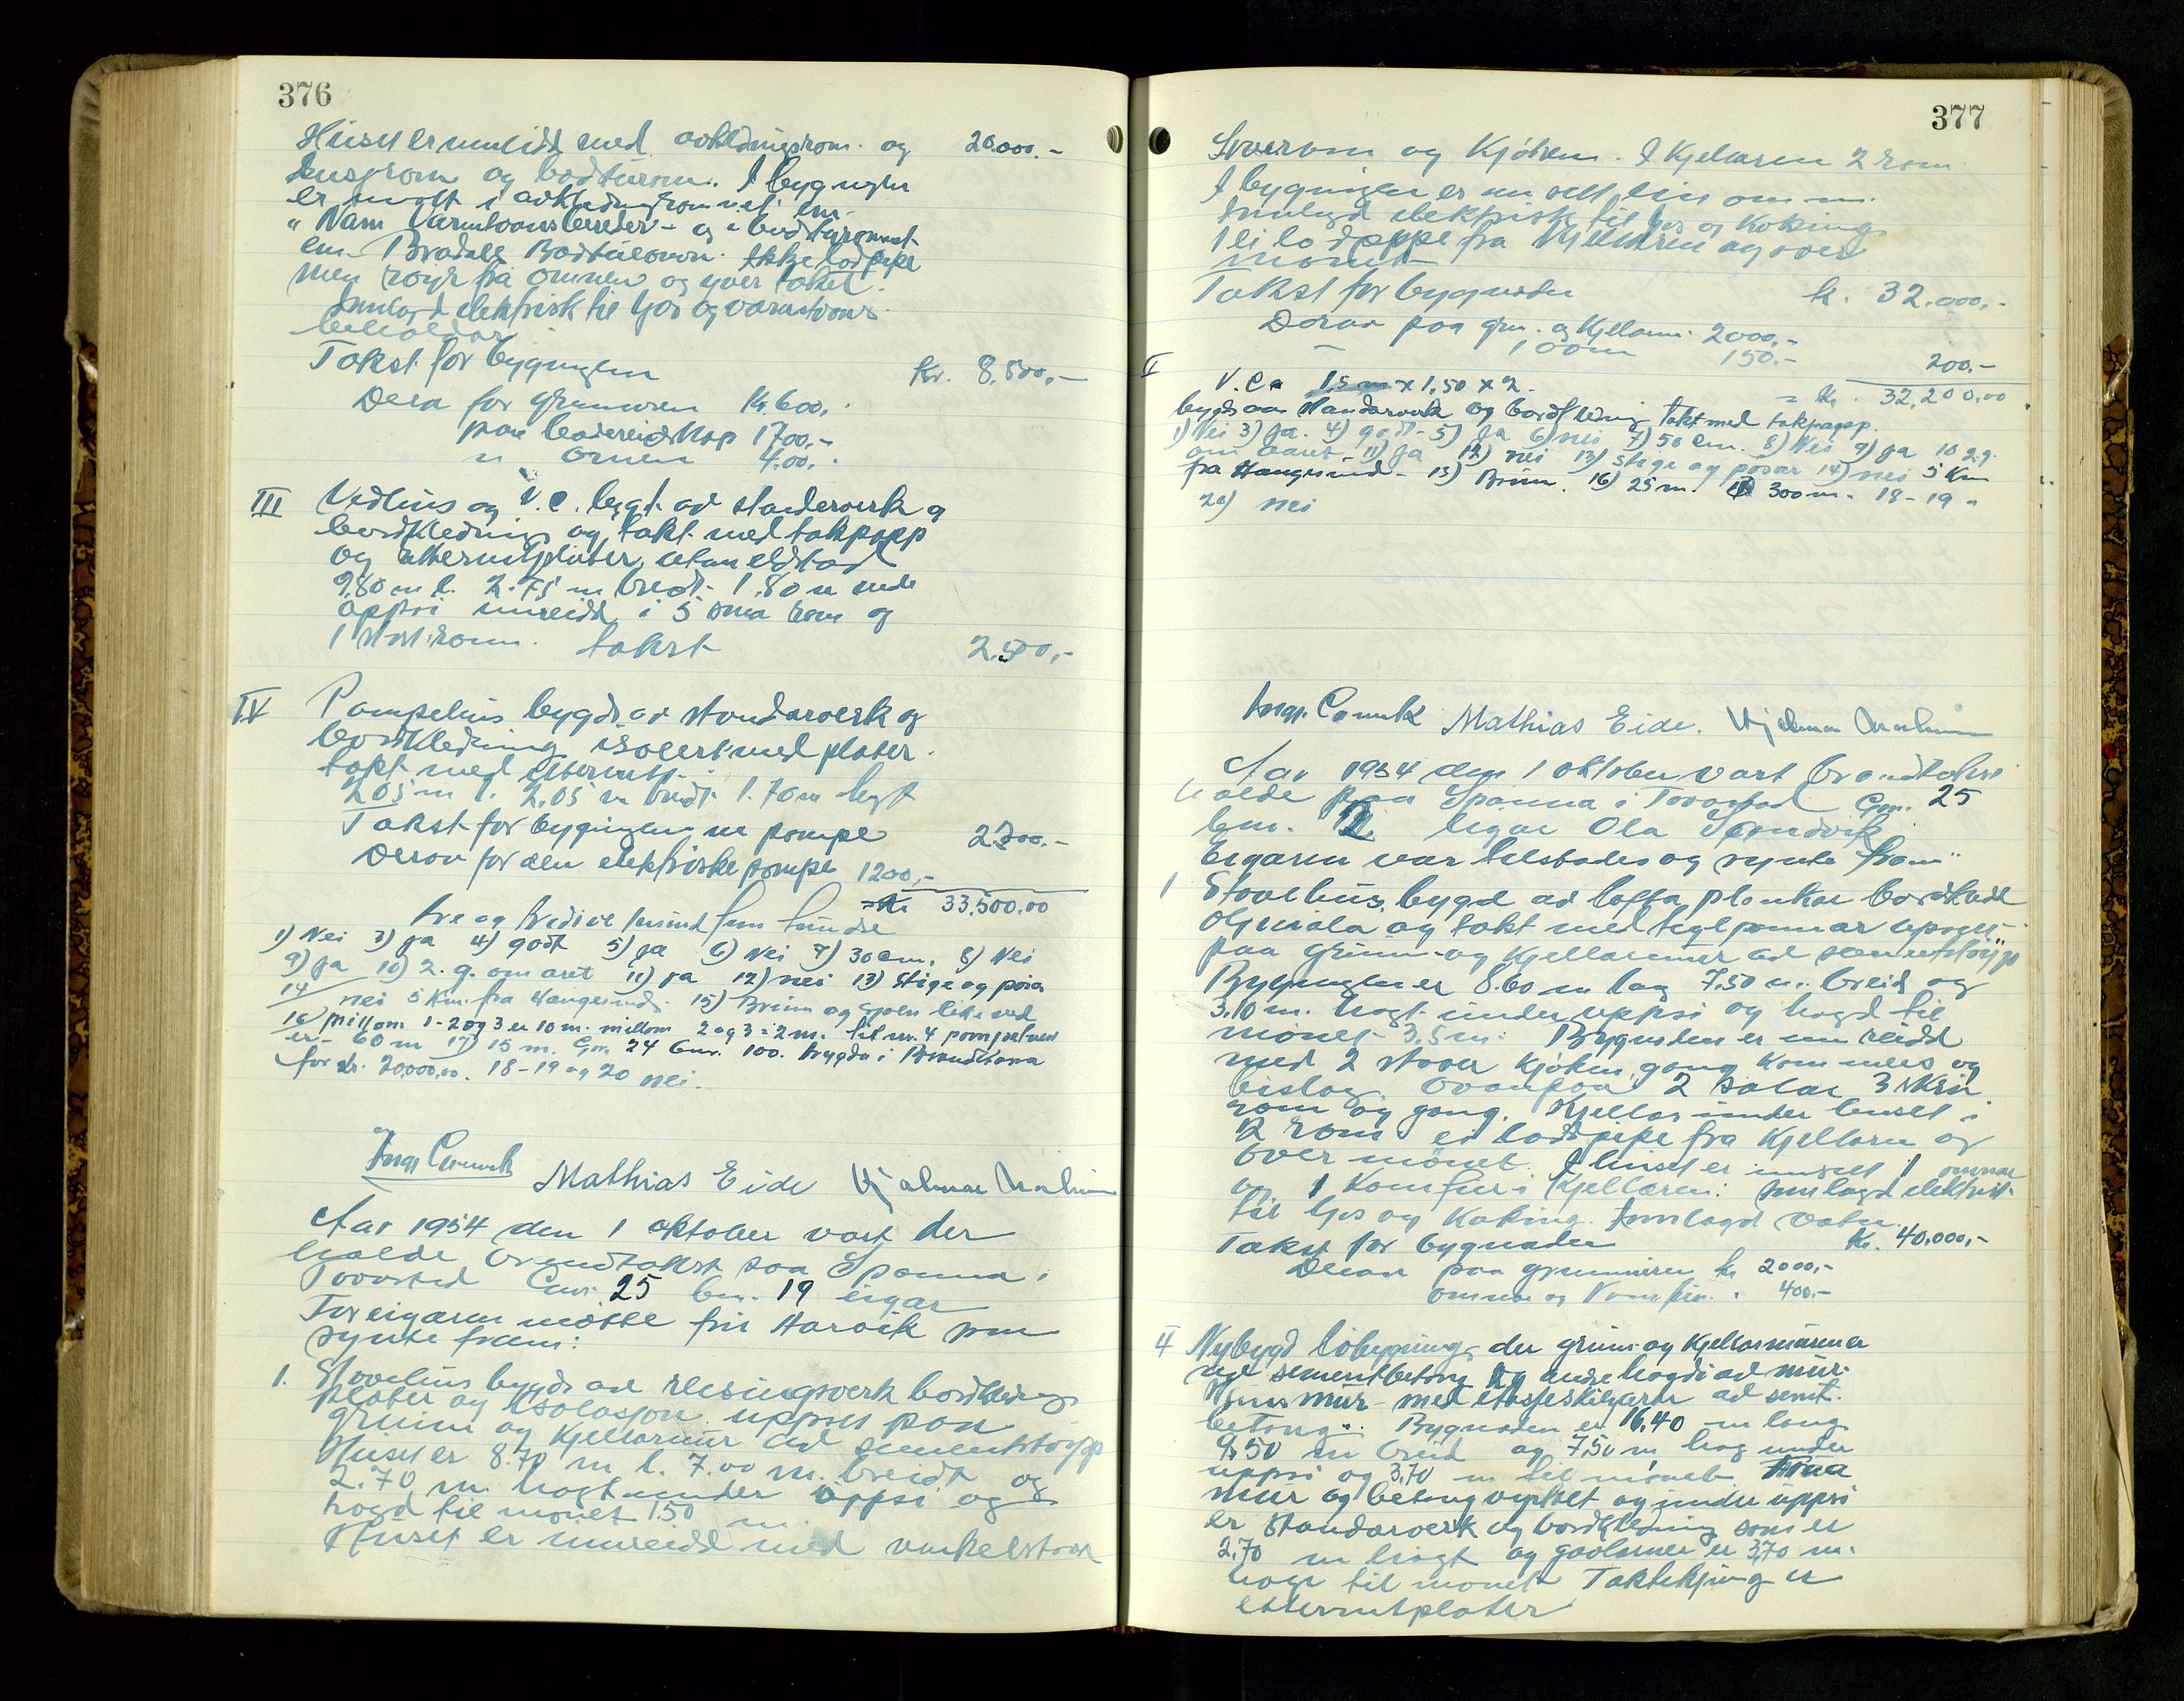 376
Huset er innreidd med avkledningsrom og 20.000.-
dusjrom og badsturom. I bygnglen
er innsett i avkledningsrommet ein
"Nam Varmtvannsbereder - og i badsturommet
ein Bradals Badstueovn. Ikke lodpipe
men royr fra omnen og yver taket.
Innlagd elektrisk til ljos og varmtvans
beholdar
Takst for bygningen Kr. 8.800,-
Derav for Grunnuren kr. 600,-
paa beredskap 1700,-
" ovnen 400,-
III Vedhus og V.C. bygt av standerverk og
bordkledning og takt med takpapp
og etternitplater, utan eldstad
9,80 m l. 2.75 m breidt 1,80 m under
oppsi innreidd i 5 smaa rom og
1 stort rom. takst 2.500,-
IV Pumpehus bygd av standarverk og
bordkledning isolert med plater.
takt med etternitt.
2.05 m l. 2.05 m breidt 1.70 m høgt
Takst for bygningen m pompe 2.200.-
Derav for den elektriske pompe 1200,-
= Kr 33.500.00
tre og tredive tusind fem hundre
1) Nei 3) Ja 4) godt 5) ja 6) Nei 7) 30 cm. 8) Nei
9) Ja 10) 2. g. om aret 11) ja 12) nei 13) Stige og pøsa
14/ nei 5 Km. fra Haugesund. 15) Brunn og sjøen like ved
16/ millom 1-2 og 3 er 10 m. millom 2 og 3 = 2 m. til nr. 4 pompehuset
er 60 m 17) 15 m. Gnr. 24 bnr. 100. trygda i Brandkassa
for kr. 20.000,00. 18-19 og 20 nei.
Mathias Eide Hjalmar
Aar 1954 den 1 oktober vart der
halde brandtakst paa Spanna i
Torvastad Gnr. 25 bnr. 19 eigar
For eigaren møtte fru Harvik som
synte fram:
1. Stovehus bygd av reisingsverk bordkledning
plater og isolasjon uppsett paa
grunn og Kjellarmur av sementstøypp
Huset er 8.70 m l. 7.00 m. breidt og
2.70 m. høgt under oppsi og
høgd til mønet 1.50 m.
Huset er innreidd med vinkelstova
377
Soverom og Kjøken. I Kjellaren 2 rom
I bygningen er innsett ein omn
Innlagd elektrisk til ljos og Koking
1 ei lodpipe fra Kjellaren og over
mønet
Takst for bygnaden kr. 32.000,-
Derav paa grn. og Kjellarm. 2000,-
1 omn 150.-
II V.C. 1,5 m x 1,50 x 2. 200.-
= Kr. 32,200.00
bygd av standarverk og bordkledning takt med takpapp.
1) Nei 3) Ja. 4) godt - 5) ja 6) nei 7) 50 cm. 8) Nei 9) ja 10 2 g.
om aaret. 11) ja 12) nei 13) stige og pøsar 14) nei 5 Km
fra Haugesund - 15) Brun. 16) 25 m. 17) 300 m. 18-19 -
20) nei
Mathias Eide. Hjalmar
Aar 1954 den 1 oktober vart brandtakst
halde paa Spanna i Torvastad Gnr. 25
bnr. 2 eigar Ola Sandvik
Eigaren var tilstades og synte fram:
1 Stovehus, bygd av lafta plankar bordkledd
oljemala og takt med teglpannar uppsett
paa Grunn- og Kjellarmur av sementstøypp
Bygnglen er 8.60 m lag 7.50 m. breid og
3.10 m. høgt under uppsi og høgd til
mønet 3.5 m: Bygnaden er innreidd
med 2 stover kjøken, gang kammers og
bislag. Ovanpaa 2 salar 3 skrin
rom og gang. Kjellar under huset i
2 rom. ei lodpipe fra Kjellaren og
over mønet. I huset er innsett 1 omnar
og 1 Komfur i Kjellaren: Innlagd elektrisk
til ljos og Koking. Innlagd vatn.
Takst for bygnaden Kr. 40.000,-
Derav paa grunnuren kr 2000,-
omnar og Komfur. " 400.-
II Nybygd løbygning, der grunn- og Kjellarmuren er
av sementbetong og andre høgdi av mur-
mur - med etasjeskiljarar av sement.
betong. Bygnaden er 16,40 m lang
9,50 m breid og 7,50 m høg under
uppsi og 3,70 m til mønet. Fraa
mur og betongkvelvet og under uppsi
er standarverk og bordkledning som er
2,70 m høgt og gavlarne er 3,70 m.
høge til mønet Taktekjing er
etternitplater